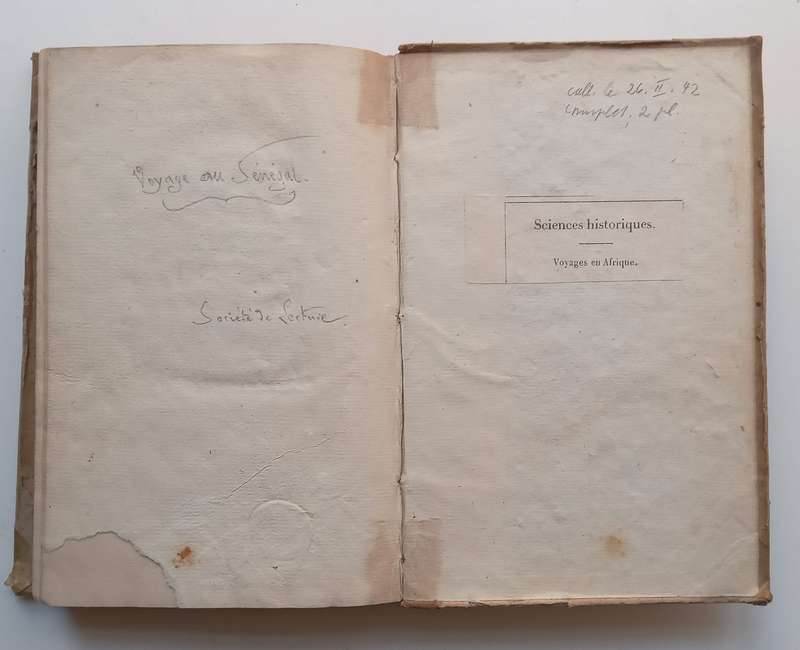 Voyage au Sénégal.
Société de Lecture
coll. le 26. II. 42
complet, 2 pl.
Sciences historiques.
Voyages en Afrique.